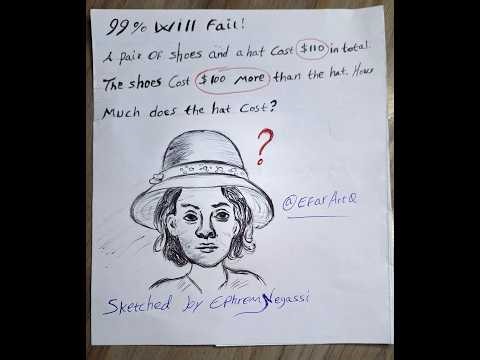 99% Will Fail!
A Pair OF shoes and a hat Cost $110 in total.
The shoes Cost $100 More than the hat. How
Much does the hat Cost?
?
@EFarArtQ
Sketched by Ephrem Negassi